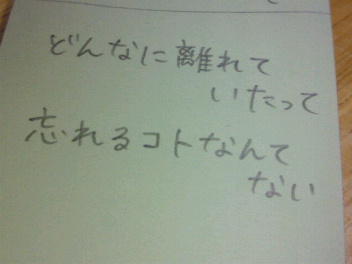 どんなに離れて
いたって
忘れるコトなんて
ない